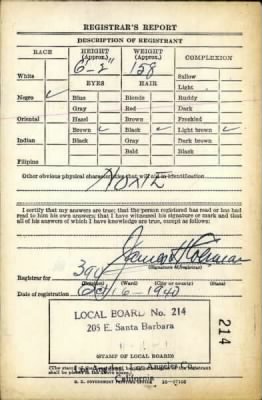 REGISTRAR'S REPORT
DESCRIPTION OF REGISTRANT
RACE HEIGHT (Approx.) WEIGHT (Approx.) COMPLEXION
6'-2" 158
White Sallow
EYES HAIR Light
Negro ✓ Blue Blonde Ruddy
Gray Red Dark
Oriental Hazel Brown Freckled
Brown ✓ Black ✓ Light brown ✓
Indian Black Gray Dark brown
Bald Black
Filipino
Other obvious physical characteristics that will aid in identification
NONE
I certify that my answers are true; that the person registered has read or has had read to him his own answers; that I have witnessed his signature or mark and that all of his answers of which I have knowledge are true, except as follows:
(Signature of registrar)
Registrar for 390
(Precinct) (Ward) (City or county) (State)
Date of registration Oct 16-1940
LOCAL BOARD No. 214
205 E. Santa Barbara
214
STAMP OF LOCAL BOARD
Los Angeles, Los Angeles Co.
California
U. S. GOVERNMENT PRINTING OFFICE